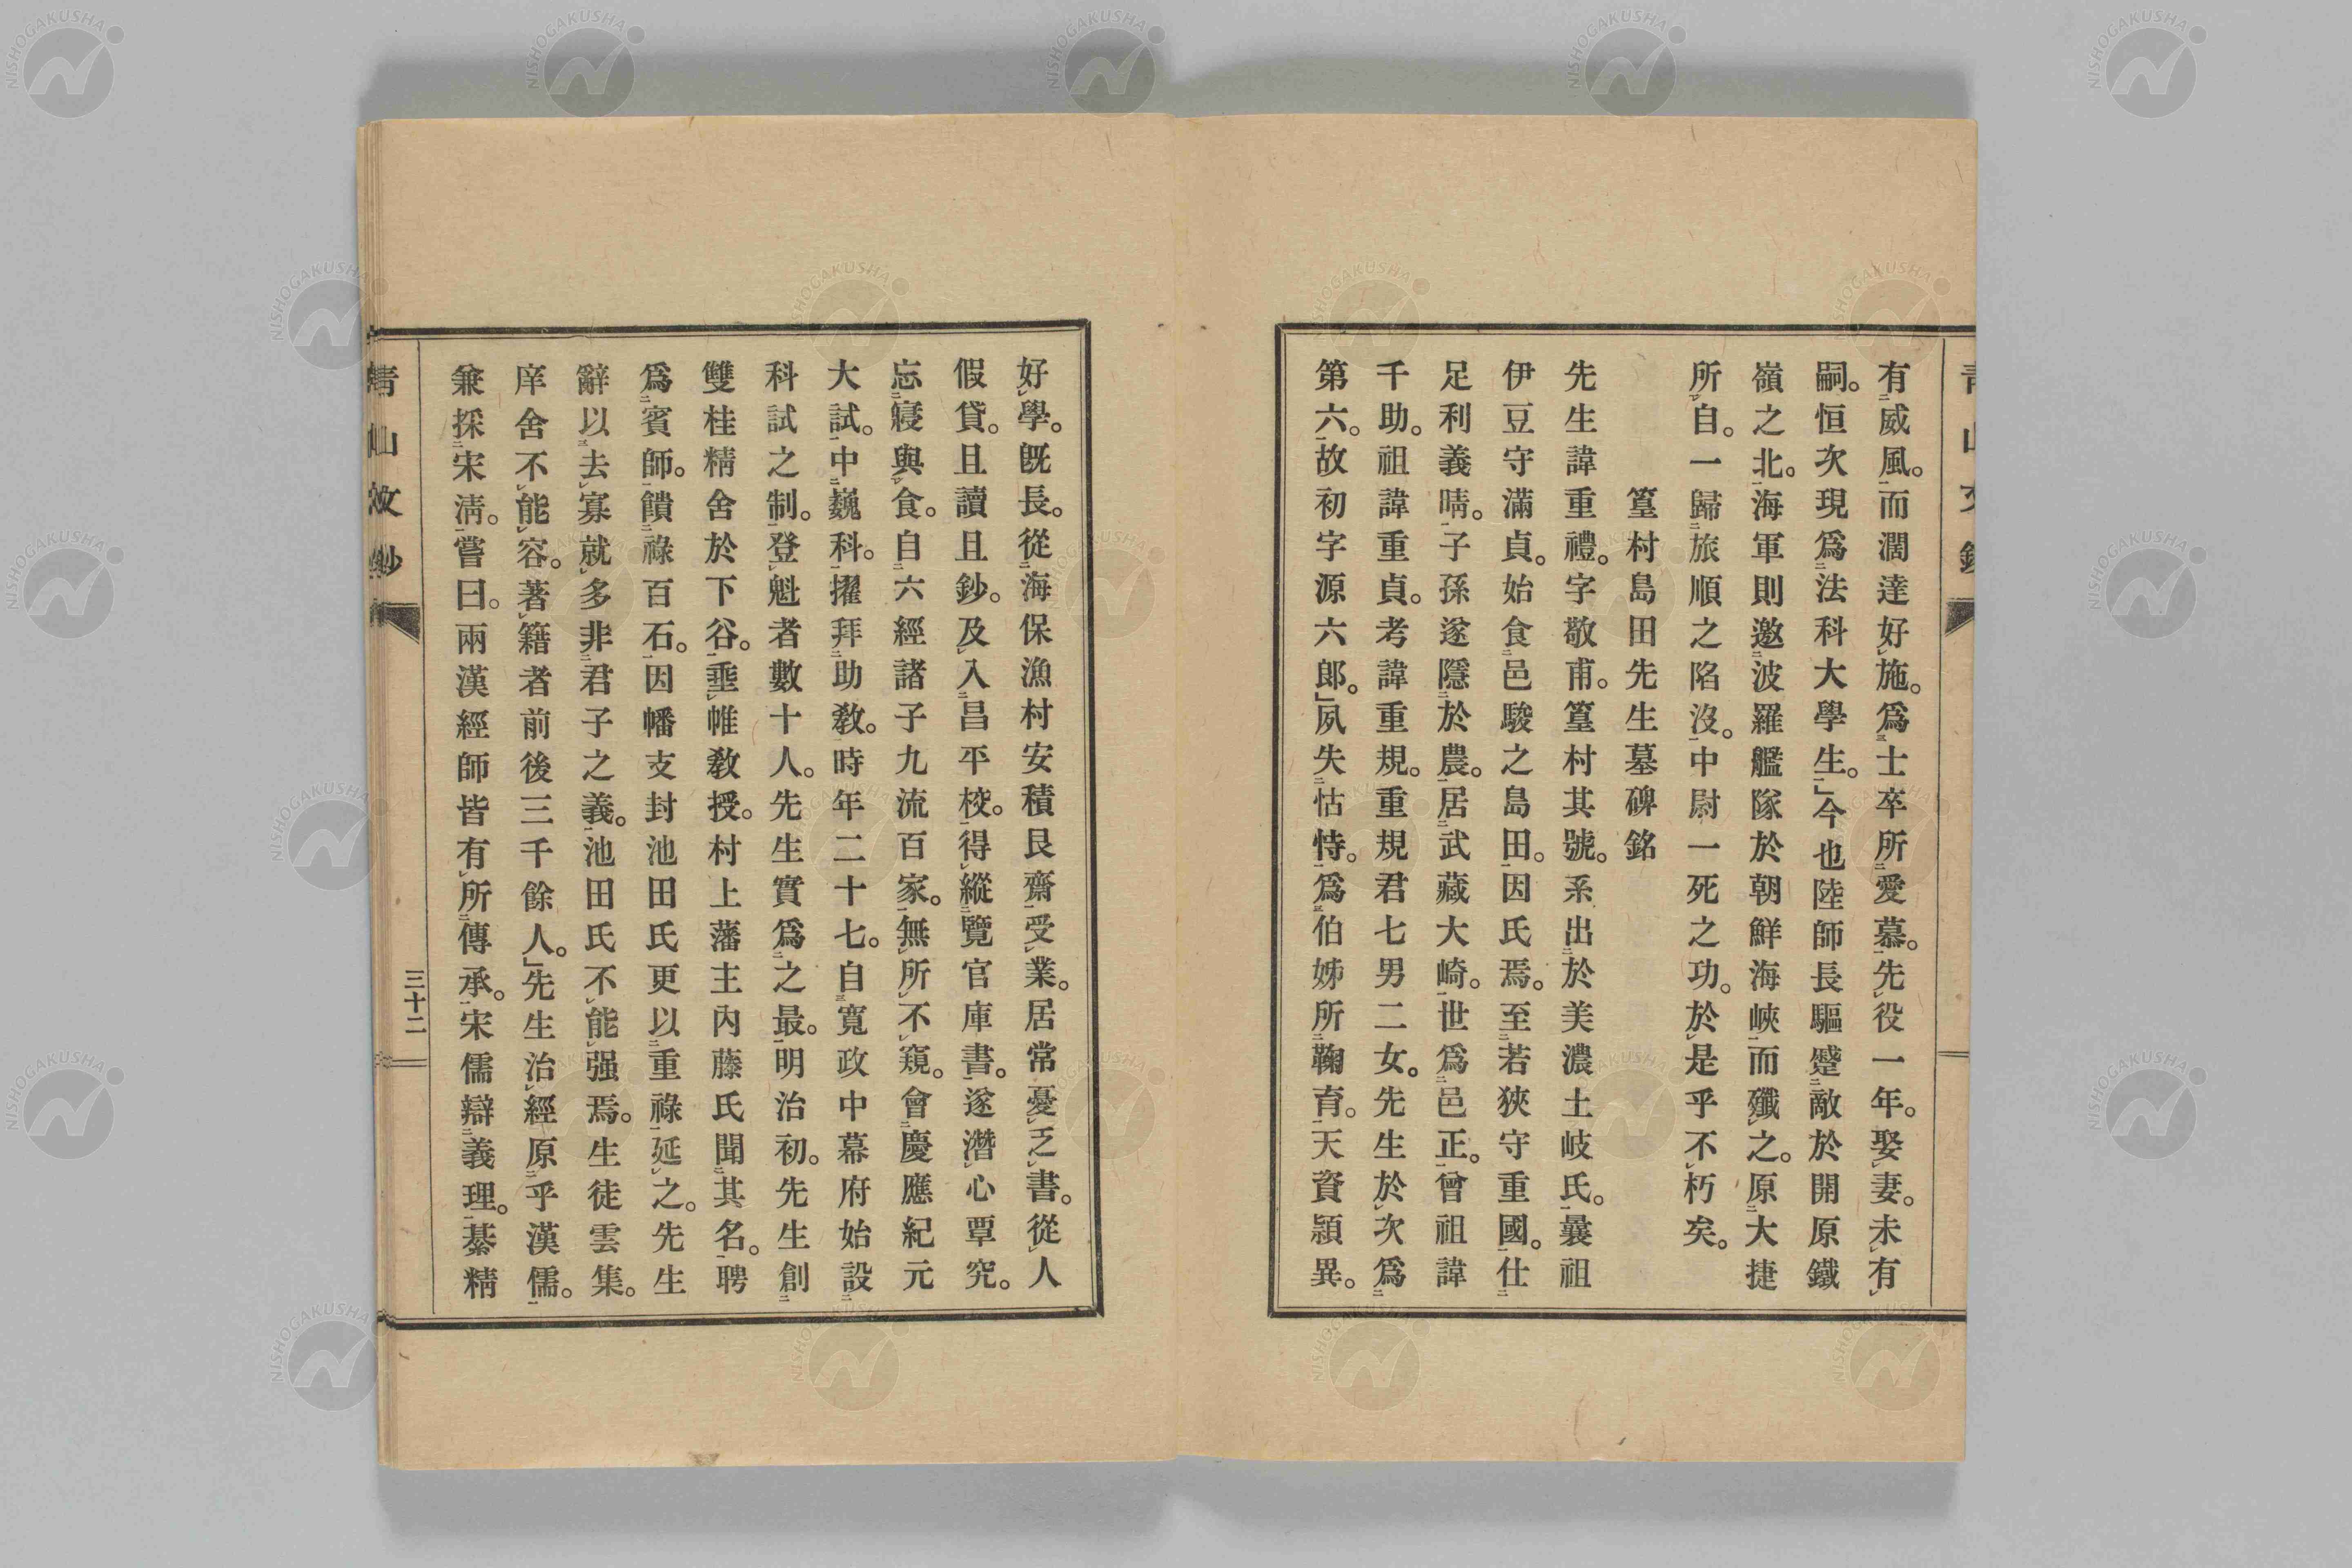 有威風。而濶達好施。爲士卒所愛慕。先役一年。娶妻。未有
嗣。恒次現爲法科大學生。」今也陸師長驅蹙敵於開原鐵
嶺之北。海軍則邀波羅艦隊於朝鮮海峽而殲之。原大捷
所自。一歸旅順之陷沒。中尉一死之功。於是乎不朽矣。
篁村島田先生墓碑銘
先生諱重禮。字敬甫。篁村其號。系出於美濃土岐氏。曩祖
伊豆守滿貞。始食邑駿之島田。因氏焉。至若狹守重國。仕
足利義晴。子孫遂隱於農。居武藏大崎。世爲邑正。曾祖諱
千助。祖諱重貞。考諱重規。重規君七男二女。先生於次爲
第六。故初字源六郎。」夙失怙恃。爲伯姊所鞠育。天資穎異。
好學。既長。從海保漁村安積艮齋受業。居常憂乏書。從人
假貸。且讀且鈔。及入昌平校。得縱覽官庫書。遂潛心覃究。
忘寢與食。自六經諸子九流百家。無所不窺。會慶應紀元
大試。中巍科。擢拜助教。時年二十七。自寬政中幕府始設
科試之制。登魁者數十人。先生實爲之最。明治初。先生創
雙桂精舍於下谷。垂帷教授。村上藩主內藤氏聞其名。聘
爲賓師。饋祿百石。因幡支封池田氏更以重祿延之。先生
辭以去寡就多非君子之義。池田氏不能强焉。生徒雲集。
庠舍不能容。著籍者前後三千餘人。」先生治經原乎漢儒。
兼採宋淸。嘗曰。兩漢經師皆有所傳承。宋儒辯義理。綦精
靑山文鈔
三十二